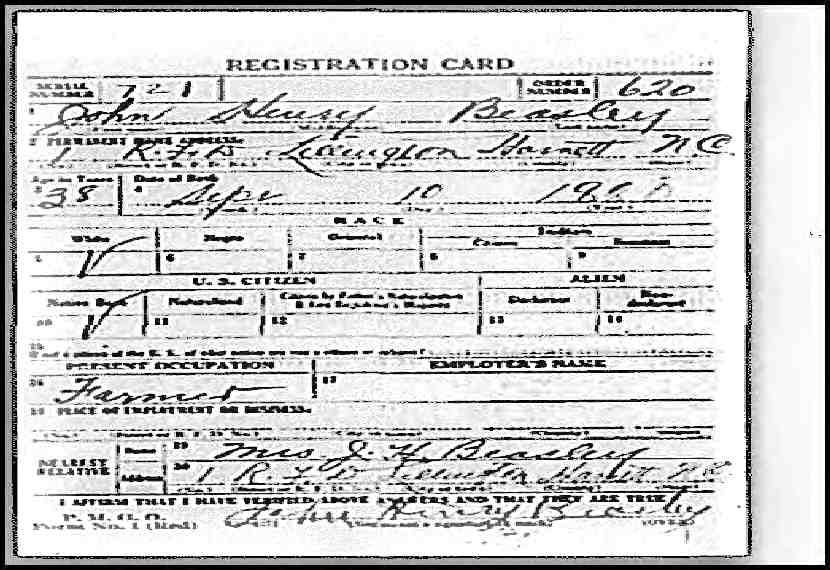 REGISTRATION CARD
SERIAL NUMBER 721 ORDER NUMBER 620
John Henry Beasley
2 PERMANENT HOME ADDRESS:
1 R.F.D. Harnett N.C.
Age in Years Date of Birth
38 Sept 10
RACE
White Negro Oriental Indian
Citizen Noncitizen
5 6 7 8 9
U. S. CITIZEN ALIEN
Native Born Naturalized Citizen by Father's Naturalization Declarant Non-declarant
10 11 12 13 14
15
PRESENT OCCUPATION EMPLOYER'S NAME
16 Farmer 17
18 PLACE OF EMPLOYMENT OR BUSINESS:
NEAREST RELATIVE Name 19 Mrs. J. H. Beasley
Address 20 1 R.F.D. Harnett N.C.
I AFFIRM THAT I HAVE VERIFIED ABOVE ANSWERS AND THAT THEY ARE TRUE
P. M. G. O.
Form No. 1 (Red) John Henry Beasley (OVER)